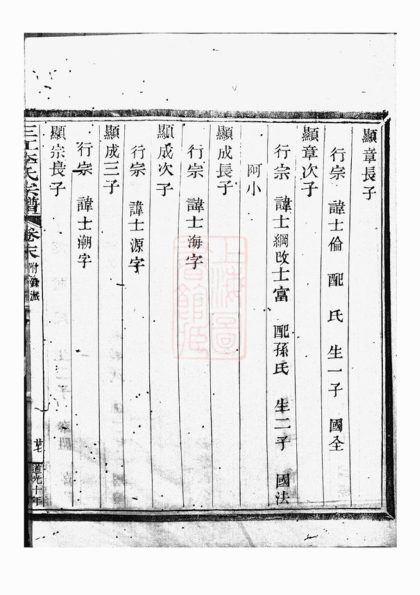 顯章長子
行宗 諱士倫 配 氏 生一子 國全
顯章次子
行宗 諱士綱改士富 配孫氏 生二子 國法
阿小
顯成長子
行宗 諱士海字
顯成次子
行宗 諱士源字
顯成三子
行宗 諱士潮字
顯宗良子
三江李氏宗譜 卷末 附 派 道光十年
上海圖書館藏